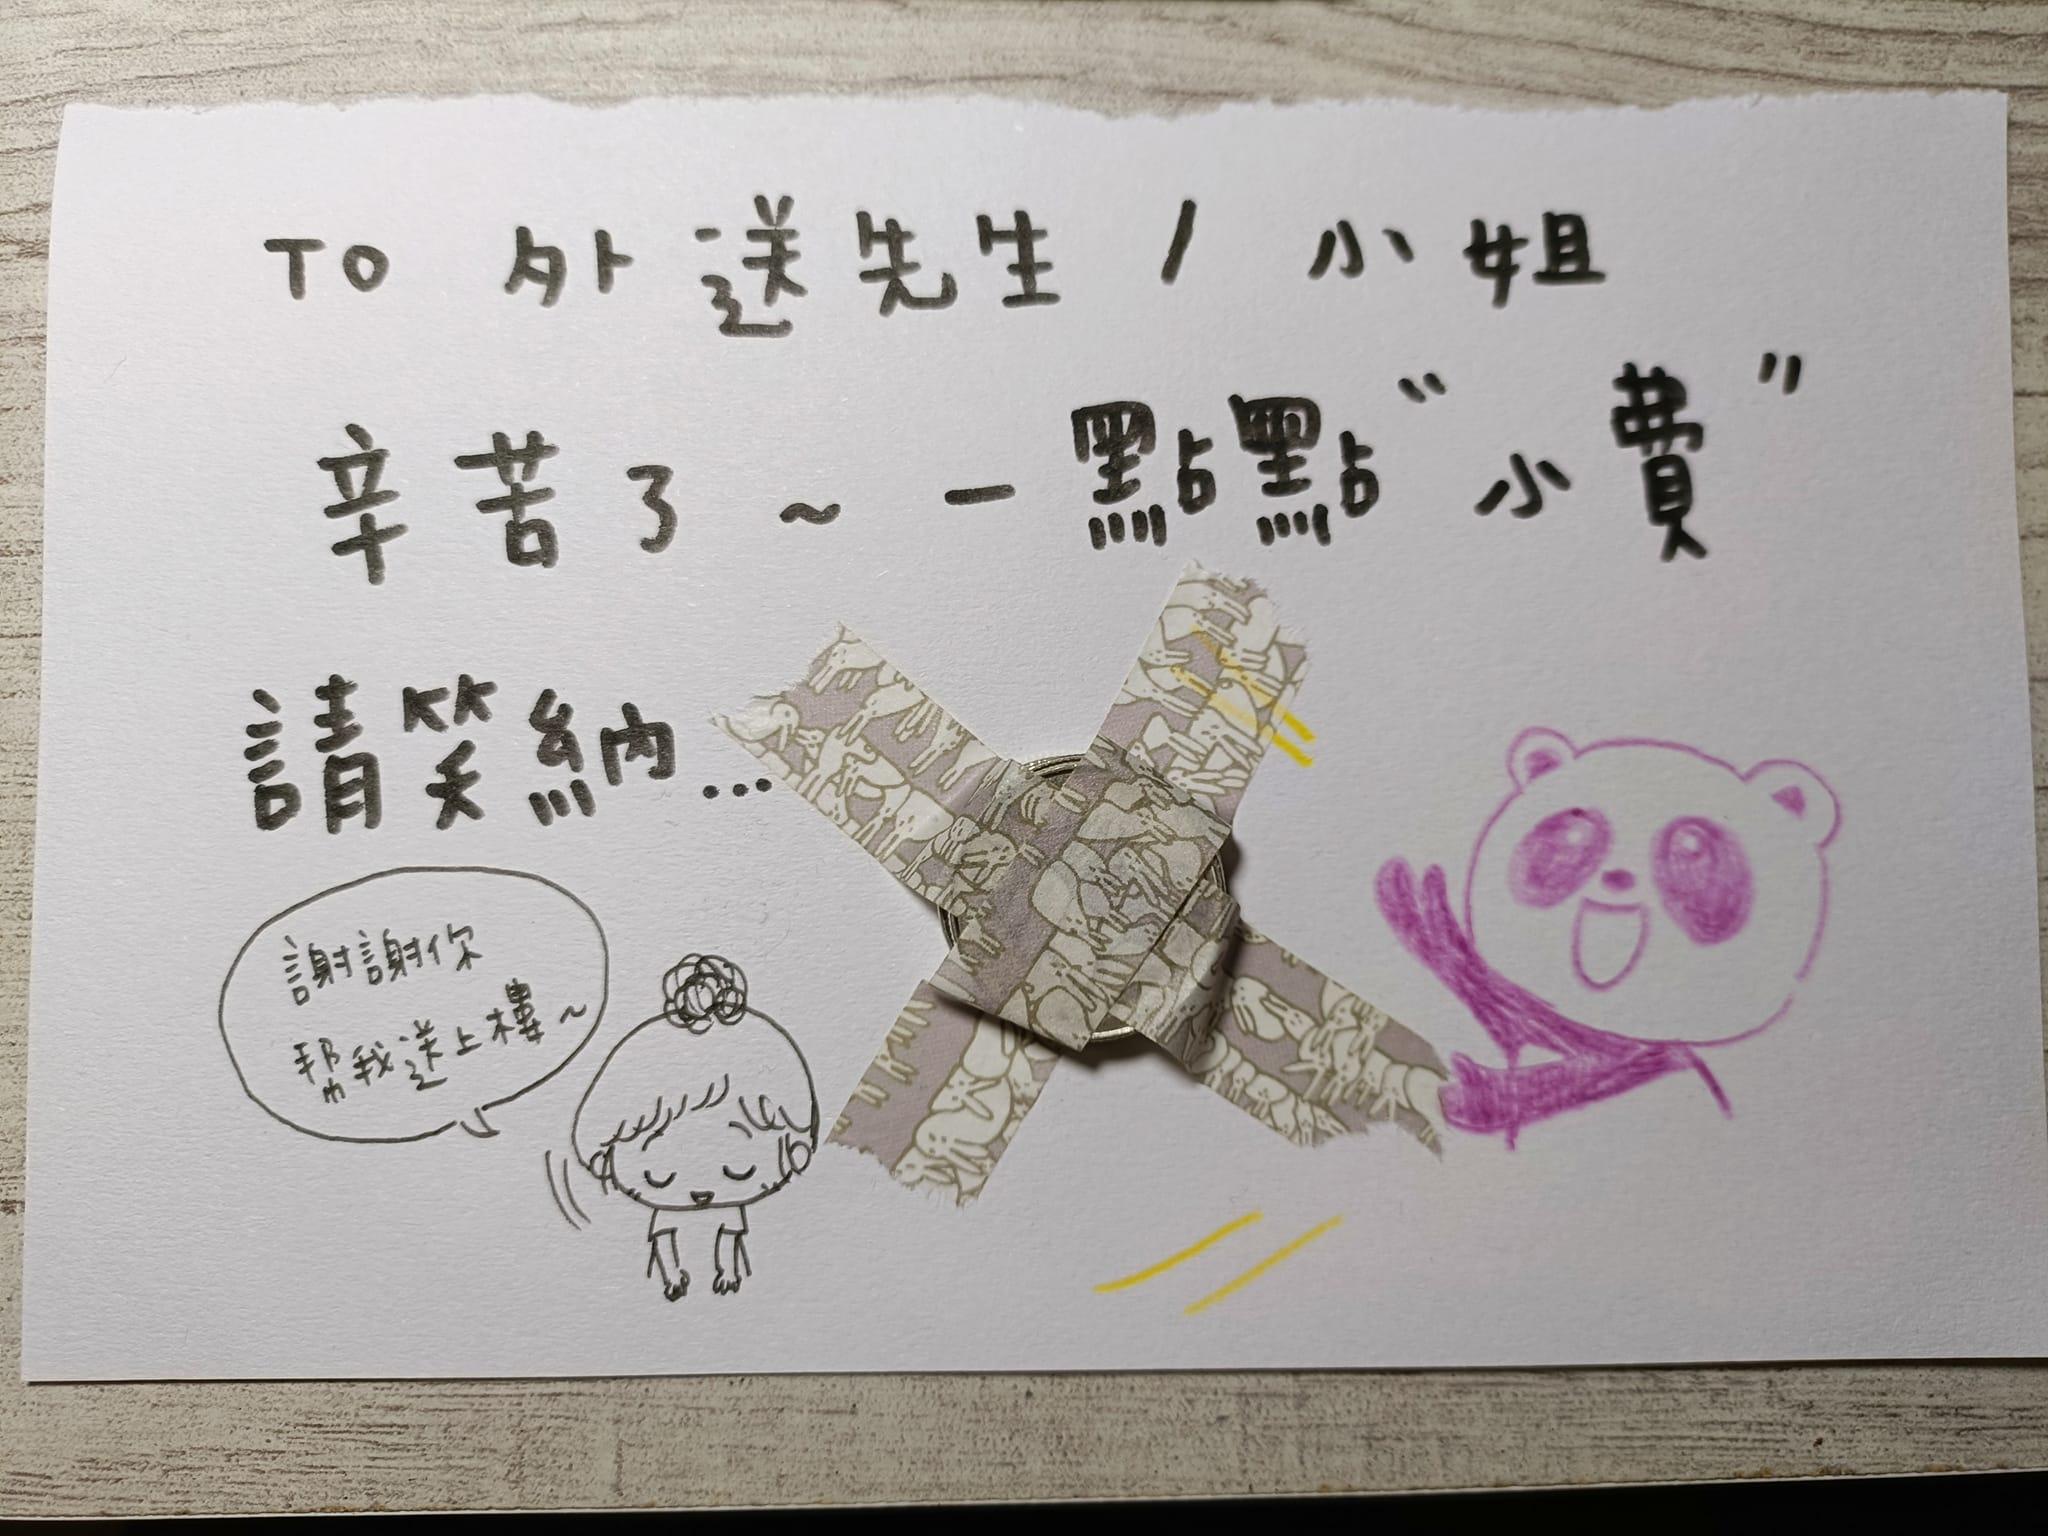 TO 外送先生 / 小姐
辛苦了~ 一點點"小費"
請笑納...
謝謝你
幫我送上樓~